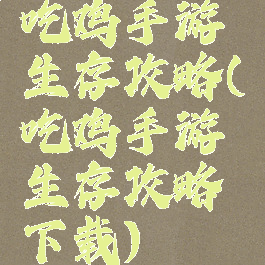 吃鸡手游
生存攻略(
吃鸡手游
生存攻略
下载)